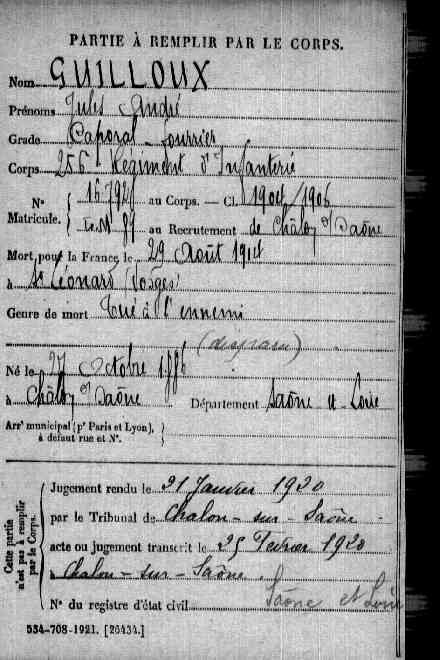 PARTIE À REMPLIR PAR LE CORPS.
Nom GUILLOUX
Prénoms Jules André
Grade Caporal Fourrier
Corps 256 Régiment d'Infanterie
N° 16792 au Corps. — Cl. 1904/1906
Matricule. 89 au Recrutement de Châlon s/ Saône
Mort pour la France le 29 Août 1914
à St Léonard (Vosges)
Genre de mort Tué à l'ennemi
(disparu)
Né le 27 Octobre 1886
à Châlon s/ Saône Département Saône-et-Loire
Arr' municipal (p' Paris et Lyon),
à défaut rue et N°.
Cette partie
n'est pas à remplir
par le Corps.
Jugement rendu le 21 Janvier 1920
par le Tribunal de Chalon-sur-Saône
acte ou jugement transcrit le 25 Fevrier 1920
à Chalon-sur-Saône.
Saône et Loire
N° du registre d'état civil
534-708-1921. [26434.]